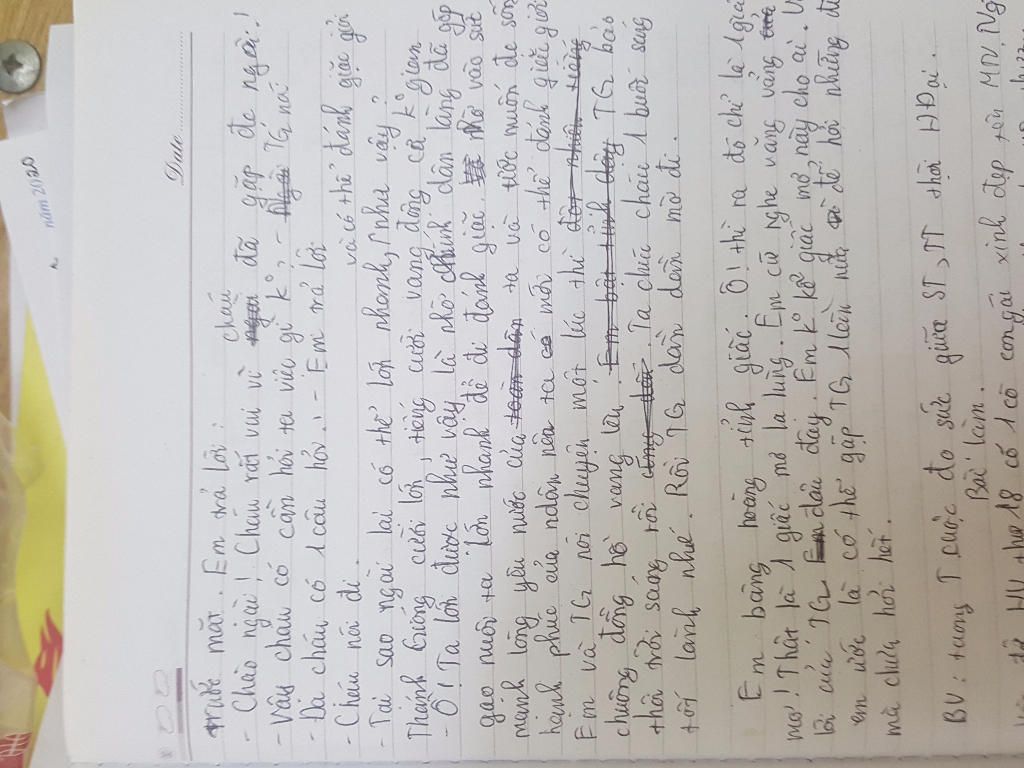 Date
năm 2020
trước mắt. Em trả lời:
- Chào ngài! Cháu rất vui vì cháu đã gặp đc ngài!
- Vậy cháu có cần hỏi ta việc gì k°, - TG nói
- Dạ cháu có 1 câu hỏi. - Em trả lời
- Cháu nói đi.
- Tại sao ngài lại có thể lớn nhanh, như vậy? và có thể đánh giặc giỏi
Thánh Gióng cười lớn, tiếng cười vang động cả k° gian
- Ồ! Ta lớn được như vậy là nhờ dân làng đã góp
gạo nuôi ta lớn nhanh để đi đánh giặc. Nhờ vào sức
mạnh lòng yêu nước của ta và ước muốn đc sống
hạnh phúc của nhân dân nên ta mới có thể đánh giặc giỏi
Em và TG nói chuyện một lúc thì
chuông đồng hồ vang lên. TG bảo
thôi trời sáng rồi. Ta chúc cháu 1 buổi sáng
tốt lành nhé. Rồi TG dần dần mờ đi.
Em bàng hoàng tỉnh giấc. Ồ! thì ra đó chỉ là 1 giấc
mơ! Thật là 1 giấc mơ lạ lùng. Em cứ nghe văng vẳng
lời của TG đâu đây. Em k° kể giấc mơ này cho ai.
em ước là có thể gặp TG 1 lần nữa để hỏi những
mà chưa hỏi hết.
BV: tượng T cuộc đo sức giữa ST, TT thời HĐại.
Bài làm.
HV thứ 18 có 1 cô con gái xinh đẹp tên MN.